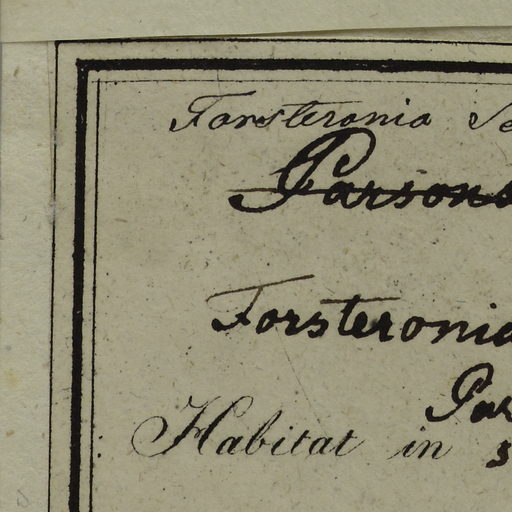 Forsteronia Se
Parsons
Forsteronia
Par
Habitat in s